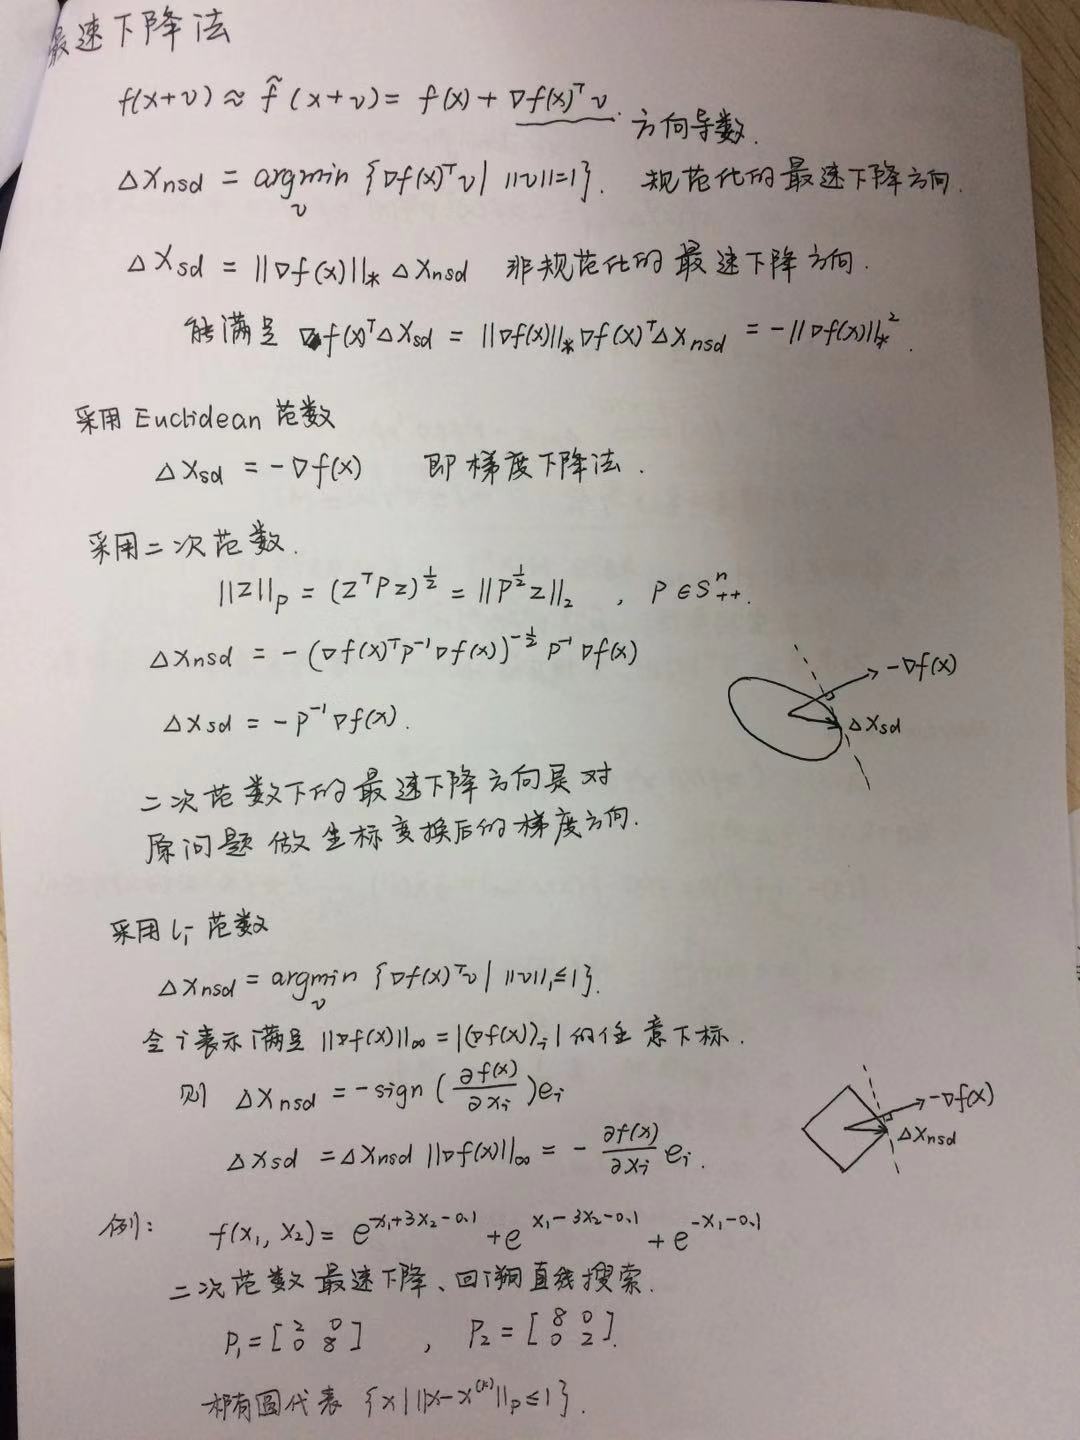 最速下降法
f(x+v) ≈ f̃(x+v) = f(x) + ∇f(x)ᵀv. 方向导数.
Δx_nsd = argmin_v {∇f(x)ᵀv | ||v||=1}. 规范化的最速下降方向.
Δx_sd = ||∇f(x)||_* Δx_nsd 非规范化的最速下降方向.
能满足 ∇f(x)ᵀΔx_sd = ||∇f(x)||_* ∇f(x)ᵀΔx_nsd = -||∇f(x)||_*².
采用 Euclidean 范数
Δx_sd = -∇f(x) 即梯度下降法.
采用二次范数.
||z||_P = (zᵀPz)^{1/2} = ||P^{1/2}z||₂ , P∈S^n_{++}.
Δx_nsd = -(∇f(x)ᵀP⁻¹∇f(x))^{-1/2} P⁻¹∇f(x)
-∇f(x)
Δx_sd = -P⁻¹∇f(x).
Δx_sd
二次范数下的最速下降方向是对
原问题做坐标变换后的梯度方向.
采用 l₁-范数
Δx_nsd = argmin_v {∇f(x)ᵀv | ||v||₁≤1}.
令 i 表示满足 ||∇f(x)||_∞ = |(∇f(x))_i| 的任意下标.
则 Δx_nsd = -sign(∂f(x)/∂x_i)e_i
-∇f(x)
Δx_nsd
Δx_sd = Δx_nsd ||∇f(x)||_∞ = -∂f(x)/∂x_i e_i.
例: f(x₁, x₂) = e^{x₁+3x₂-0.1} + e^{x₁-3x₂-0.1} + e^{-x₁-0.1}
二次范数最速下降、回溯直线搜索.
P₁ = [2 0; 0 8] , P₂ = [8 0; 0 2].
椭圆代表 {x | ||x-x^{(k)}||_P≤1}.